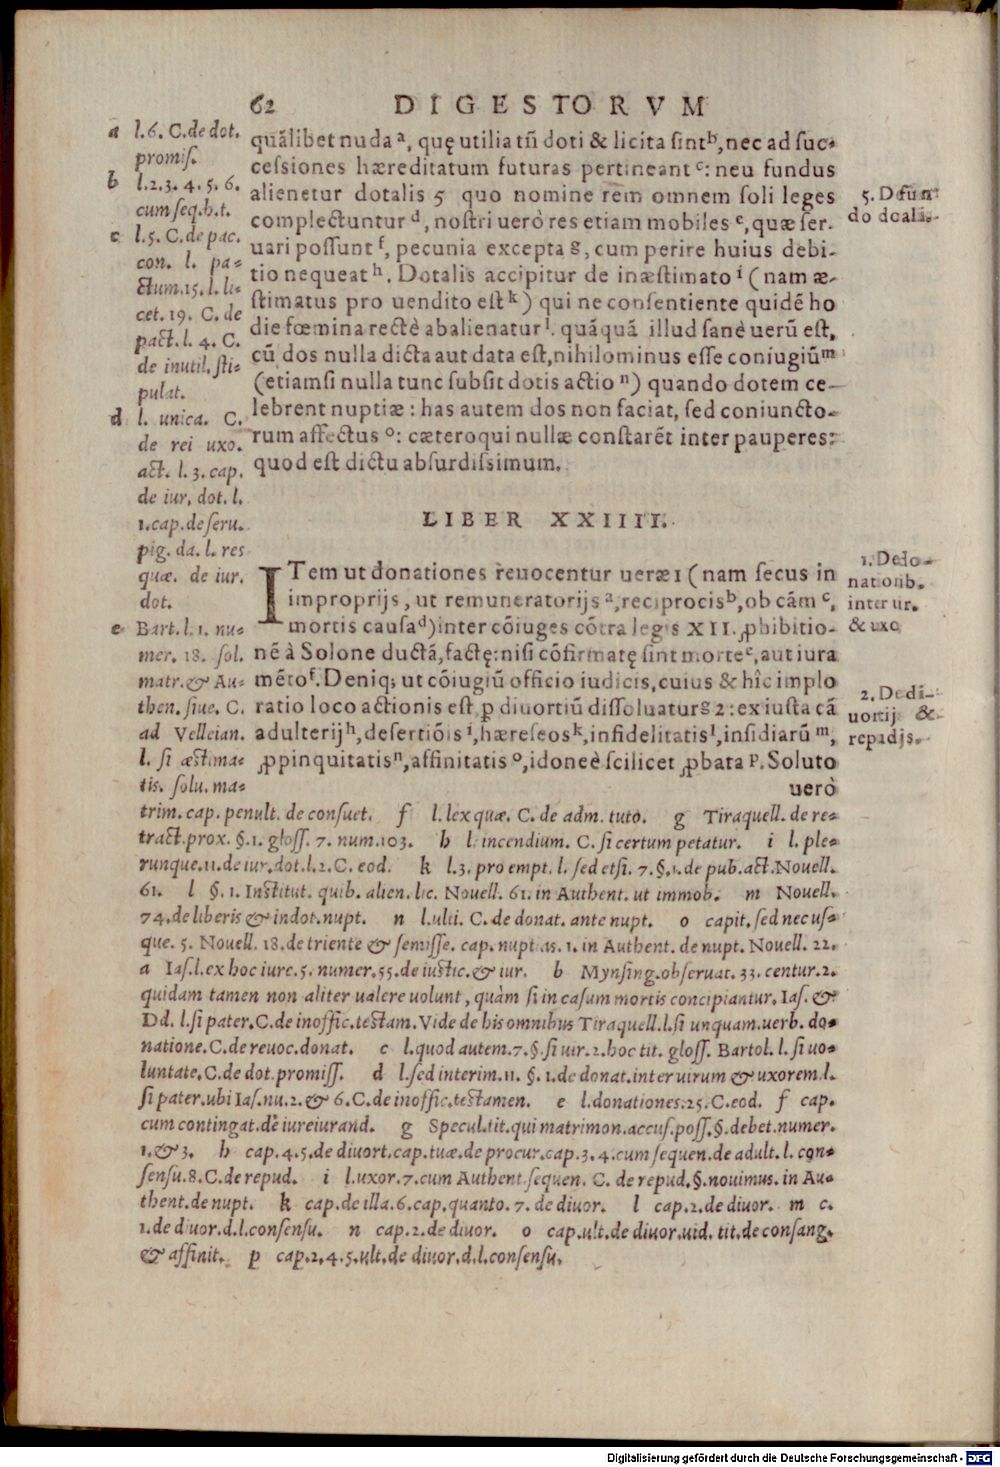 62 DIGESTORVM
quālibet nuda a, quę utilia tū doti & licita sint b, nec ad suc-
cessiones hæreditatum futuras pertineant c: neu fundus
alienetur dotalis 5 quo nomine rem omnem soli leges
complectuntur d, nostri uerò res etiam mobiles e, quæ ser-
uari possunt f, pecunia excepta g, cum perire huius debi-
tio nequeat h. Dotalis accipitur de inæstimato i (nam æ-
stimatus pro uendito est k) qui ne consentiente quidē ho
die fœmina rectè abalienatur l. quāquā illud sanè uerū est,
cū dos nulla dicta aut data est, nihilominus esse coniugiū m
(etiamsi nulla tunc subsit dotis actio n) quando dotem ce-
lebrent nuptiæ: has autem dos non faciat, sed coniuncto-
rum affectus o: cæteroqui nullæ constarēt inter pauperes:
quod est dictu absurdissimum.
a l.6. C. de dot.
promis.
b l.2.3.4.5.6.
cum seq.h.t.
c l.5. C. de pac.
con. l. pa-
ctum.15.l.li-
cet.19. C. de
pact.l.4. C.
de inutil. sti-
pulat.
d l. unica. C.
de rei uxo.
act. l.3. cap.
de iur. dot. l.
1.cap.de seru.
pig. da. l. res
quæ. de iur.
dot.
e Bart.l.1. nu-
mer. 18. sol.
matr. & Au-
then. siue. C.
ad Velleian.
l. si æstima-
tis. solu. ma-
5. D fun
do doali.
LIBER XXIIII.
ITem ut donationes reuocentur ueræ 1 (nam secus in
improprijs, ut remuneratorijs a, reciprocis b, ob cām c,
mortis causa d) inter cōiuges cōtra legis XII. ꝓhibitio-
nē à Solone ductā, factę: nisi cōfirmatę sint morte e, aut iura
mēto f. Deniq; ut cōiugiū officio iudicis, cuius & hîc implo
ratio loco actionis est, ꝑ diuortiū dissoluatur g 2: ex iusta cā
adulterij h, desertiōis i, hæreseos k, infidelitatis l, insidiarū m,
ꝓpinquitatis n, affinitatis o, idoneè scilicet ꝓbata p. Soluto
uerò
1. De do-
nationib.
inter ur.
& uxo
2. De di-
uortij &
repadjs.
trim. cap. penult. de consuet. f l. lex quæ. C. de adm. tuto. g Tiraquell. de re-
tract.prox. §.1. gloss. 7. num.103. h l. incendium. C. si certum petatur. i l. ple-
runque.11.de iur.dot.l.2.C. eod. k l.3. pro empt. l. sed etsi. 7. §.1. de pub.act.Nouell.
61. l §. 1. Institut. quib. alien. lic. Nouell. 61. in Authent. ut immob. m Nouell.
74. de liberis & indot. nupt. n l.ulti. C. de donat. ante nupt. o capit. sed nec us-
que. 5. Nouell. 18. de triente & semisse. cap. nuptias. 1. in Authent. de nupt. Nouell. 22.
a Ias.l.ex hoc iure.5. numer.55. de iustic. & iur. b Mynsing.obseruat.33. centur.2.
quidam tamen non aliter ualere uolunt, quàm si in casum mortis concipiantur. Ias. &
Dd. l.si pater.C.de inoffic.testam. Vide de his omnibus Tiraquell.l.si unquam.uerb. do-
natione.C.de reuoc.donat. c l.quod autem.7.§.si uir.2.hoc tit. gloss. Bartol. l. si uo-
luntate.C.de dot.promiss. d l.sed interim.11. §. 1. de donat.inter uirum & uxorem.l.
si pater.ubi Ias.nu.2. & 6. C.de inoffic.testamen. e l.donationes.25. C.eod. f cap.
cum contingat.de iureiurand. g Specul.tit.qui matrimon.accus.poss.§.debet.numer.
1. & 3. h cap.4.5.de diuort.cap.tuæ.de procur.cap.3.4.cum sequen.de adult. l. con-
sensu.8. C.de repud. i l.uxor.7.cum Authent.sequen. C. de repud.§.nouimus. in Au-
thent.de nupt. k cap.de illa.6.cap.quanto.7. de diuor. l cap.2.de diuor. m c.
1.de diuor.d.l.consensu. n cap.2.de diuor. o cap.ult.de diuor.uid. tit.de consang.
& affinit. p cap.2.4.5.ult.de diuor.d.l.consensu.
Digitalisierung gefördert durch die Deutsche Forschungsgemeinschaft - DFG